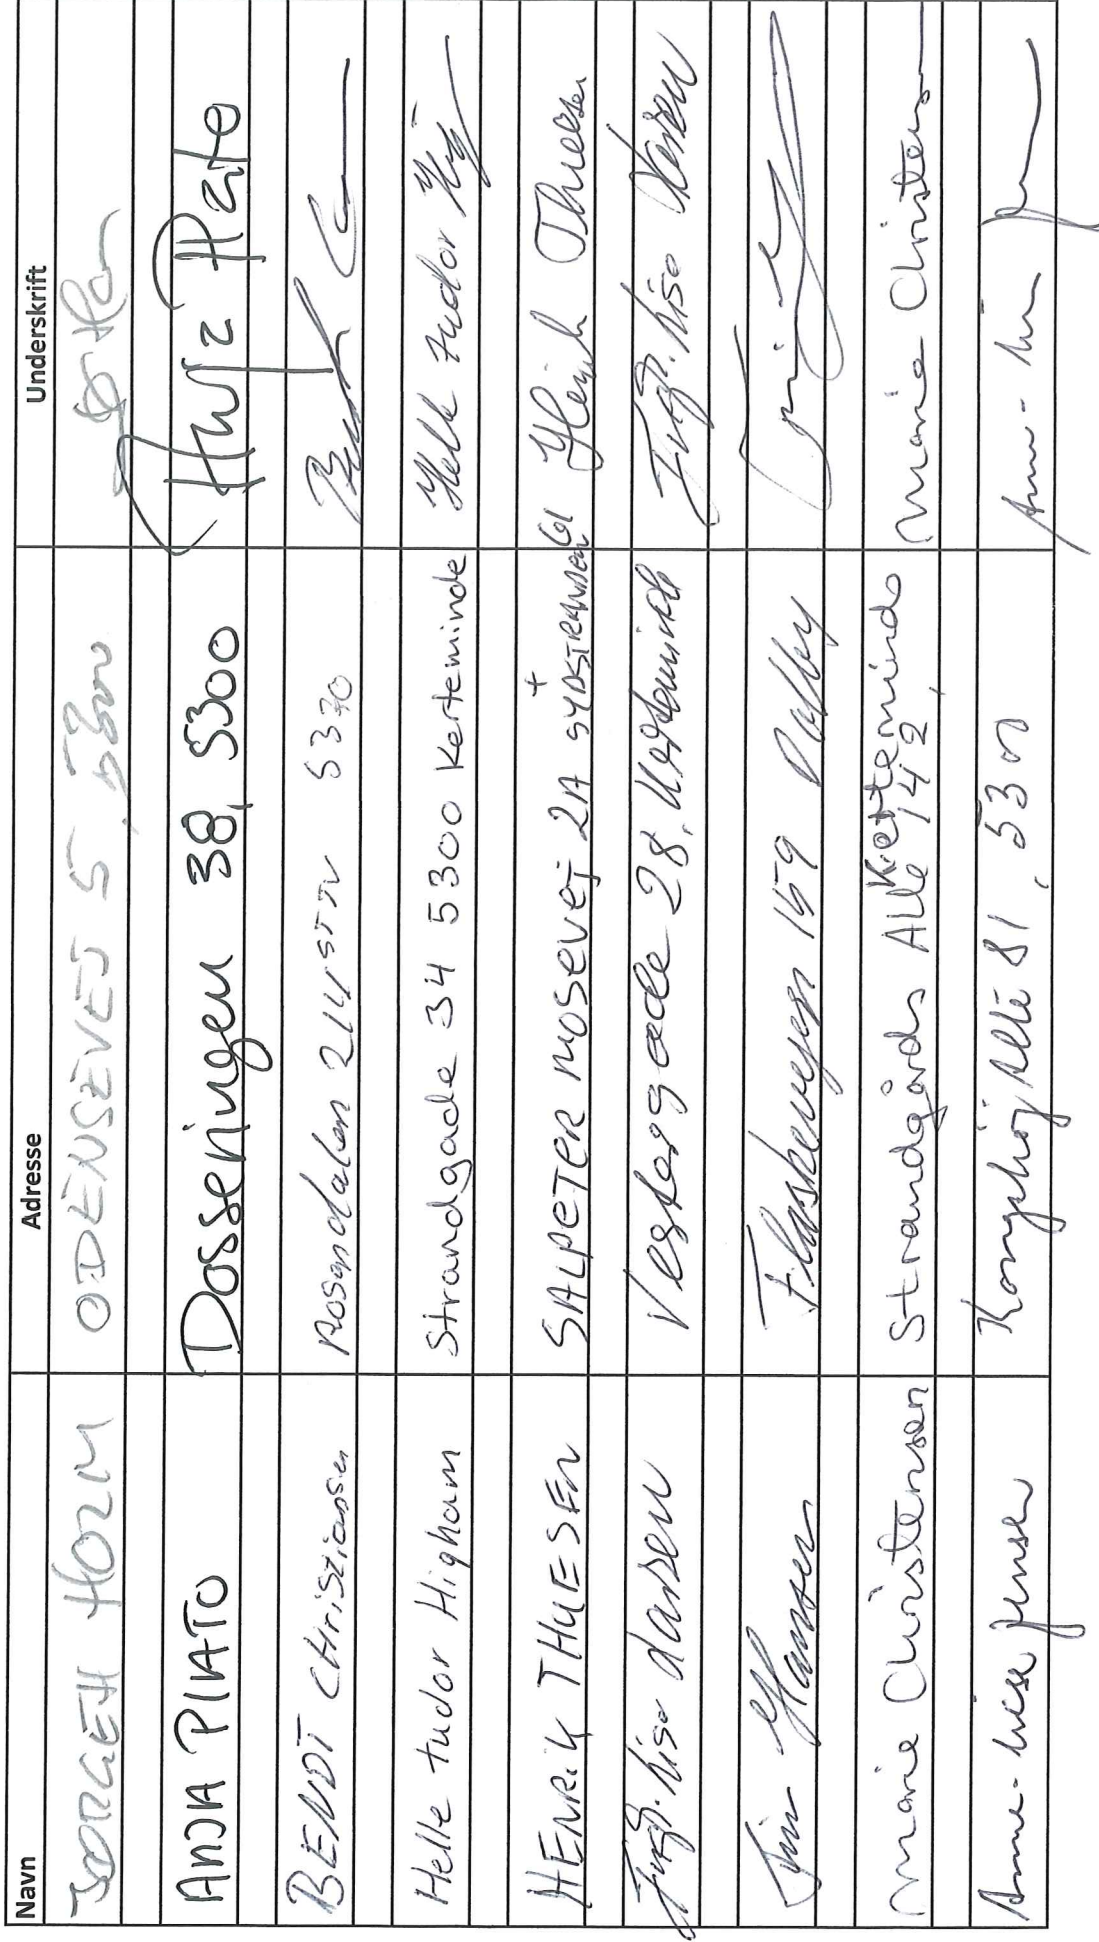 Navn Adresse Underskrift
JØRGEN HOLM ODENSEVEJ 5, 5300
ANJA PLATO Dosseringen 38, 5300 Anja Plato
BENDT CHristiansen Rosendalen 214 5370
Helle tudor Higham Strandgade 34 5300 Kerteminde Helle tudor
HENRIK THUESEN SALPETER MOSEVEJ 2A + SYDSTRANDEN Henrik Thuesen
Lise Larsen Vestergade 28, Kerteminde Lise Larsen
Finn Hansen Flaskevejen 159 Dalby
Marie Christensen Strandgårds Alle 142, Kerteminde Marie Christensen
Anne-Lise Jensen Kongshøj Allé 81, 5300